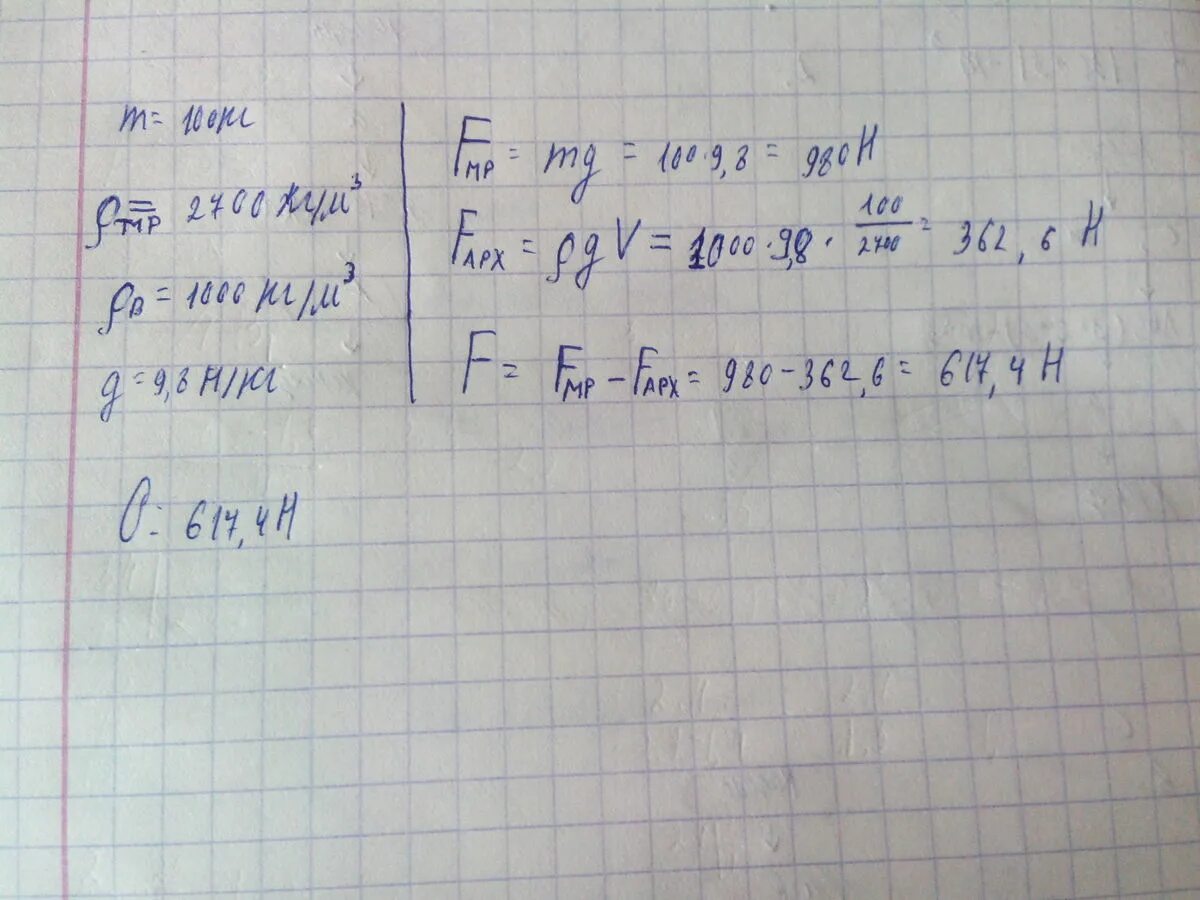 m = 100кг
ρтмр = 2700 кг/м³
ρв = 1000 кг/м³
g = 9,8 Н/кг
Fмр = mg = 100·9,8 = 980Н
Fарх = ρgV = 1000·9,8·100/2700 = 362,6 Н
F = Fмр − Fарх = 980 − 362,6 = 617,4 Н
О: 617,4Н